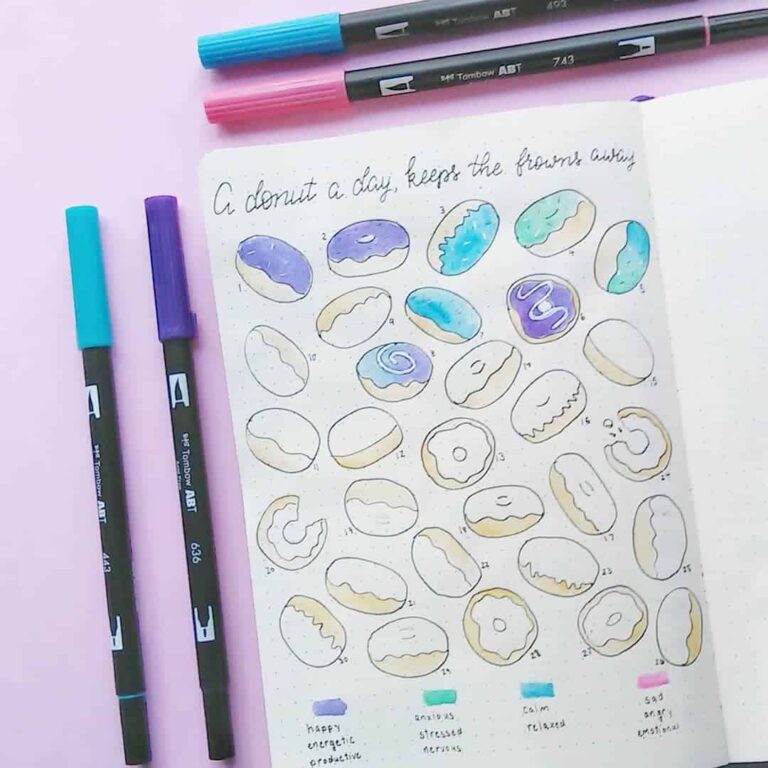 Tombow ABT 493
Tombow ABT 743
Tombow ABT 443
Tombow ABT 636
A donut a day, keeps the frowns away
1
2
3
4
5
10
9
7
6
8
14
15
11
12
13
16
20
19
18
17
21
22
23
25
30
29
28
27
26
happy
energetic
productive
anxious
stressed
nervous
calm
relaxed
sad
angry
emotional